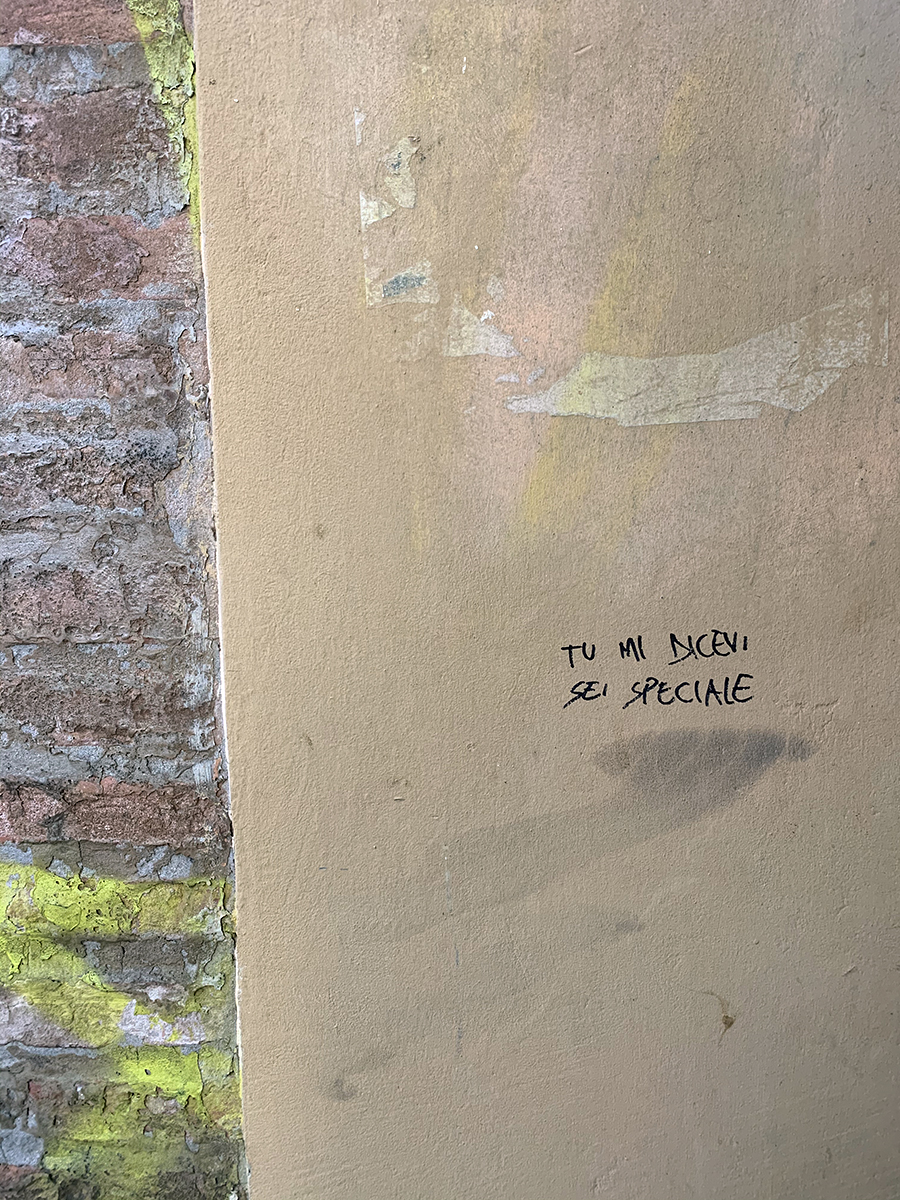 TU MI DICEVI
SEI SPECIALE